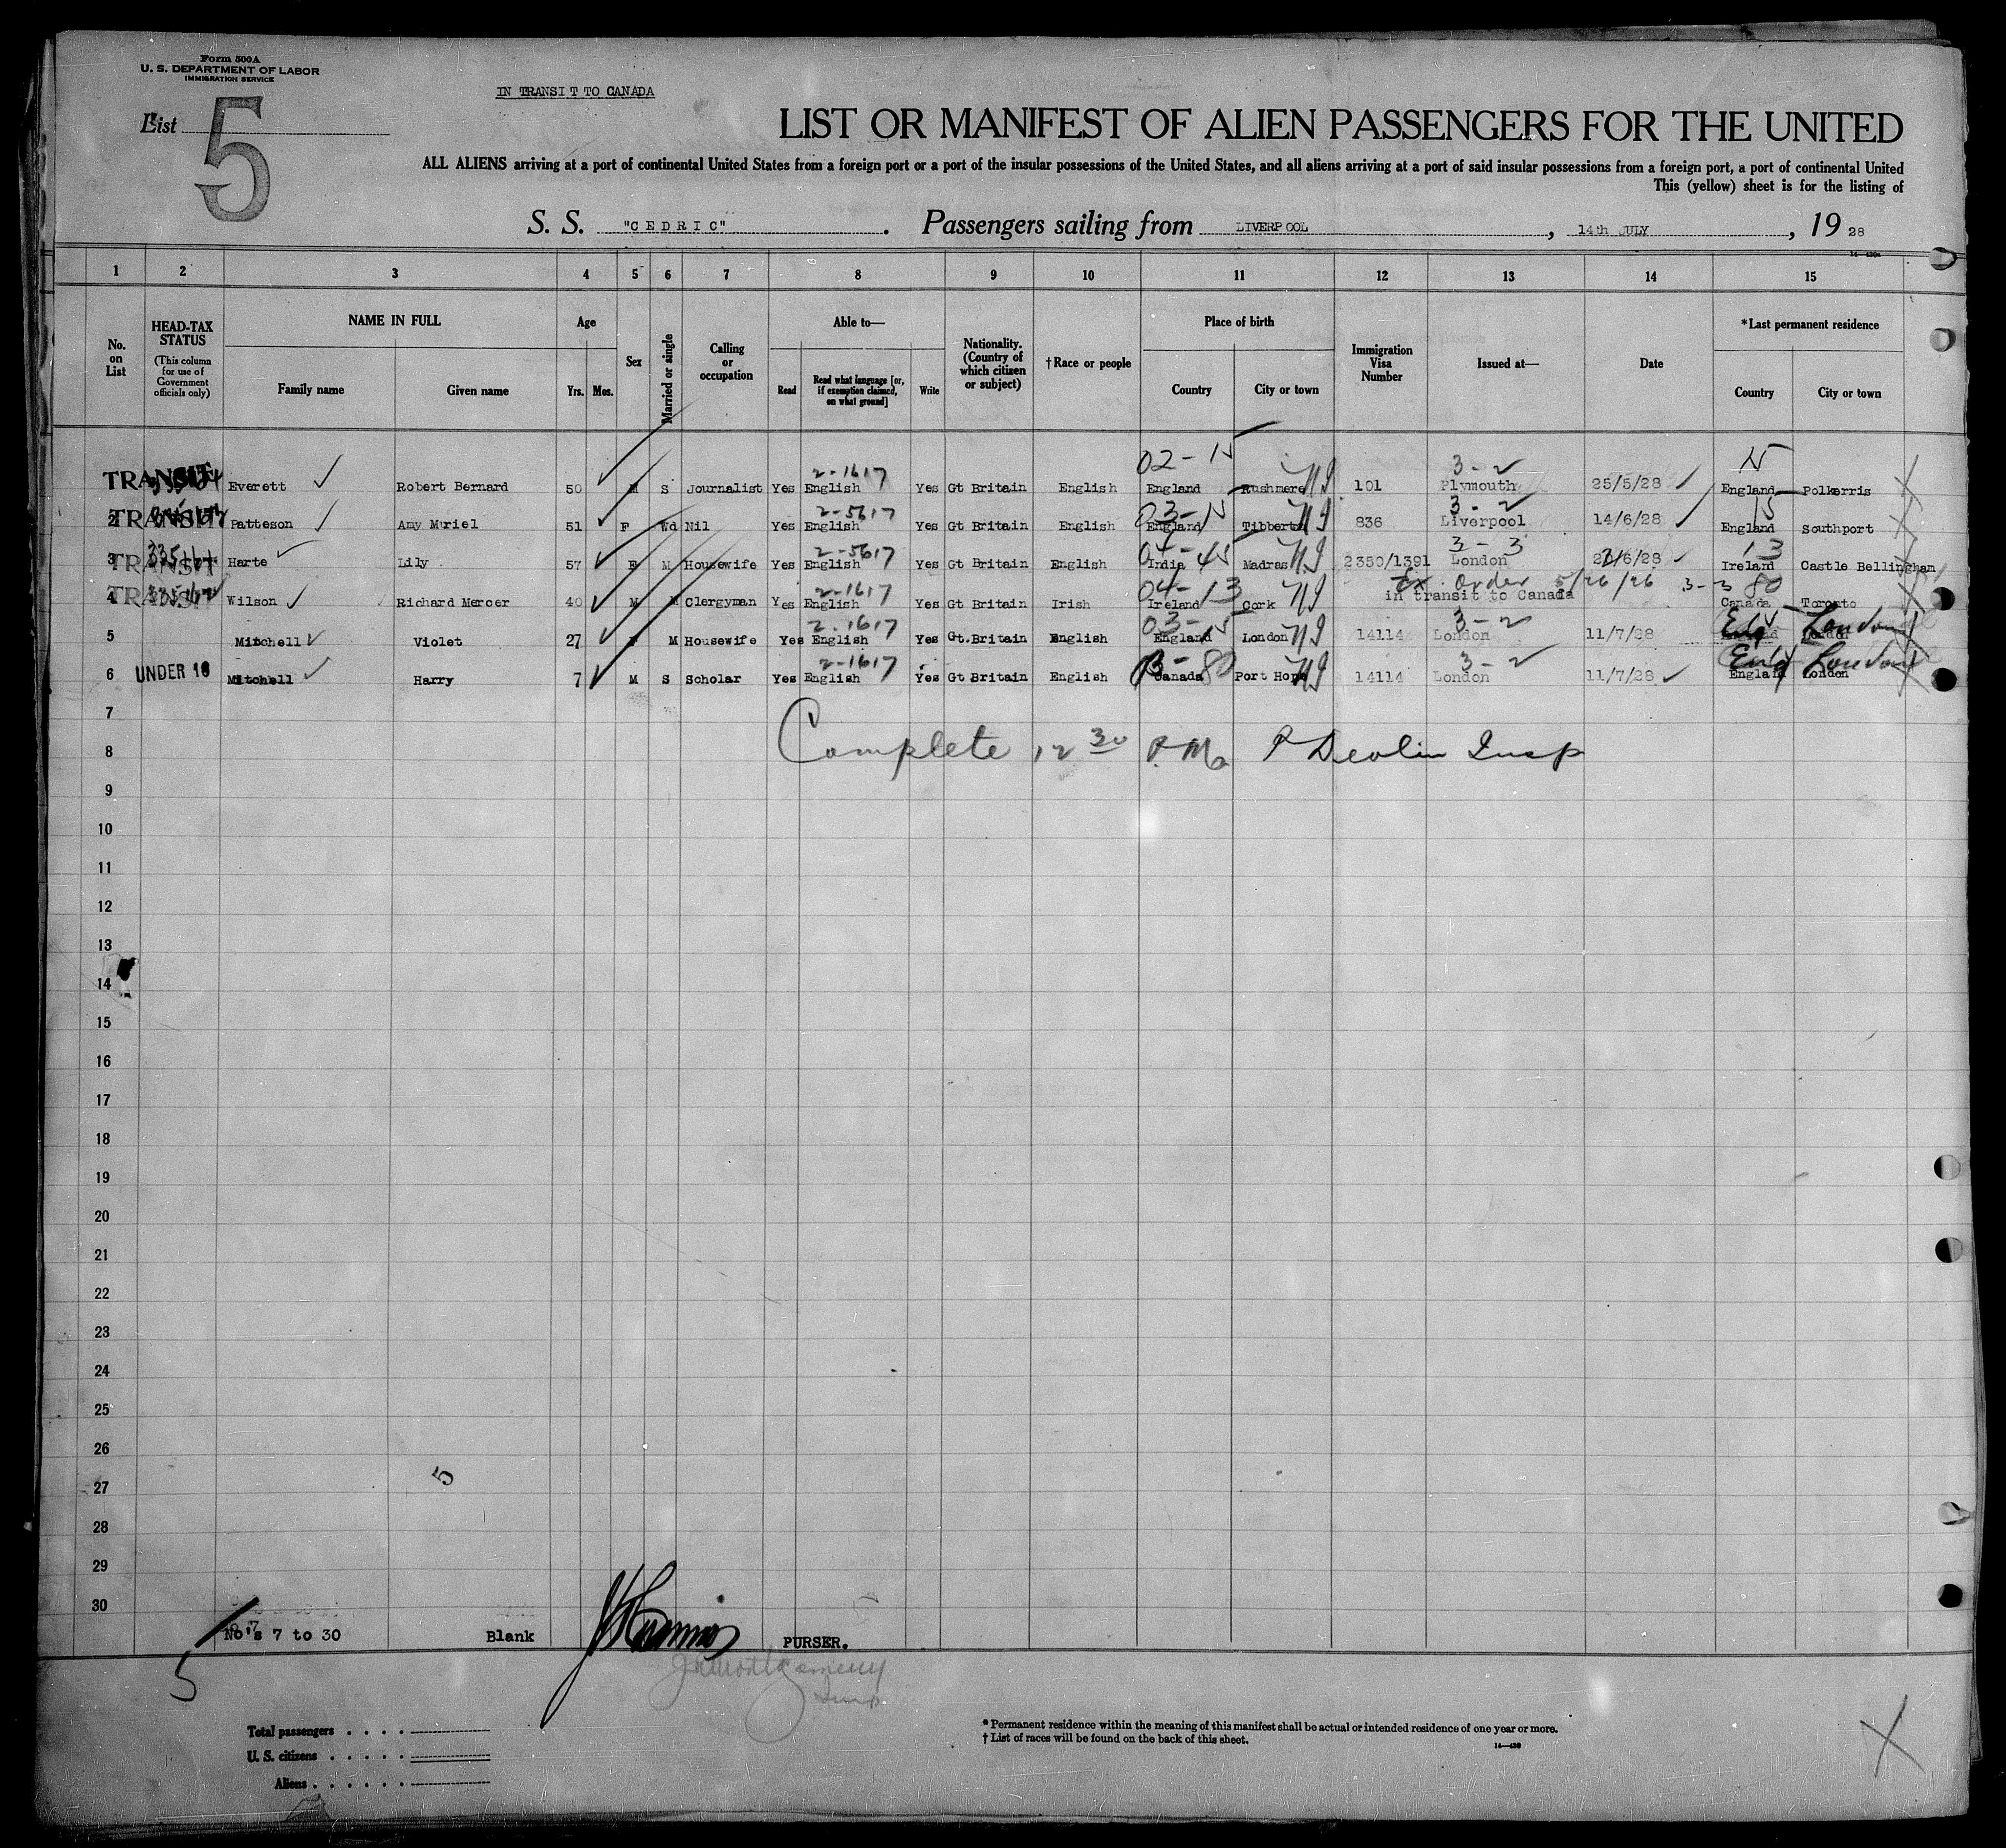 Form 500A
U. S. DEPARTMENT OF LABOR
IMMIGRATION SERVICE
IN TRANSIT TO CANADA
List 5
LIST OR MANIFEST OF ALIEN PASSENGERS FOR THE UNITED
ALL ALIENS arriving at a port of continental United States from a foreign port or a port of the insular possessions of the United States, and all aliens arriving at a port of said insular possessions from a foreign port, a port of continental United
This (yellow) sheet is for the listing of
S. S. "CEDRIC". Passengers sailing from LIVERPOOL, 14th JULY, 19 28
1 2 3 4 5 6 7 8 9 10 11 12 13 14 15
No. on List
HEAD-TAX STATUS (This column for use of Government officials only)
NAME IN FULL
Family name Given name
Age
Yrs. Mos.
Sex
Married or single
Calling or occupation
Able to—
Read Read what language [or, if exemption claimed, on what ground] Write
Nationality. (Country of which citizen or subject)
†Race or people
Place of birth
Country City or town
Immigration Visa Number
Issued at—
Date
*Last permanent residence
Country City or town
02-15 3-2 15
2-1617
TRANSIT Everett Robert Bernard 50 M S Journalist Yes English Yes Gt Britain English England Rushmere 101 Plymouth 25/5/28 England Polkerris
2-5617 03-15 3-2 15
2 TRANSIT Patteson Amy Muriel 51 F Wd Nil Yes English Yes Gt Britain English England Tibberton 836 Liverpool 14/6/28 England Southport
2-5617 04-45 3-3 13
3 TRANSIT Harte Lily 57 F M Housewife Yes English Yes Gt Britain English India Madras 2350/1391 London /6/28 Ireland Castle Bellingham
2-1617 04-13 Ex. Order 5/26/26 3-3 80
4 TRANSIT Wilson Richard Mercer 40 M M Clergyman Yes English Yes Gt Britain Irish Ireland Cork in transit to Canada Canada Toronto
2-1617 03-15 3-2 Eng London
5 Mitchell Violet 27 F M Housewife Yes English Yes Gt.Britain English England London 14114 London 11/7/28 London
2-1617 3-2 Eng London
6 UNDER 16 Mitchell Harry 7 M S Scholar Yes English Yes Gt Britain English Canada 80 Port Hope 14114 London 11/7/28 England London
7
Complete 12 30 P.M. P Devlin Insp
8
9
10
11
12
13
14
15
16
17
18
19
20
21
22
23
24
25
26
27
5
28
29
30
No's 7 to 30 Blank PURSER.
5
J Montgomery
Insp.
Total passengers
U. S. citizens
Aliens
* Permanent residence within the meaning of this manifest shall be actual or intended residence of one year or more.
† List of races will be found on the back of this sheet.
14—430